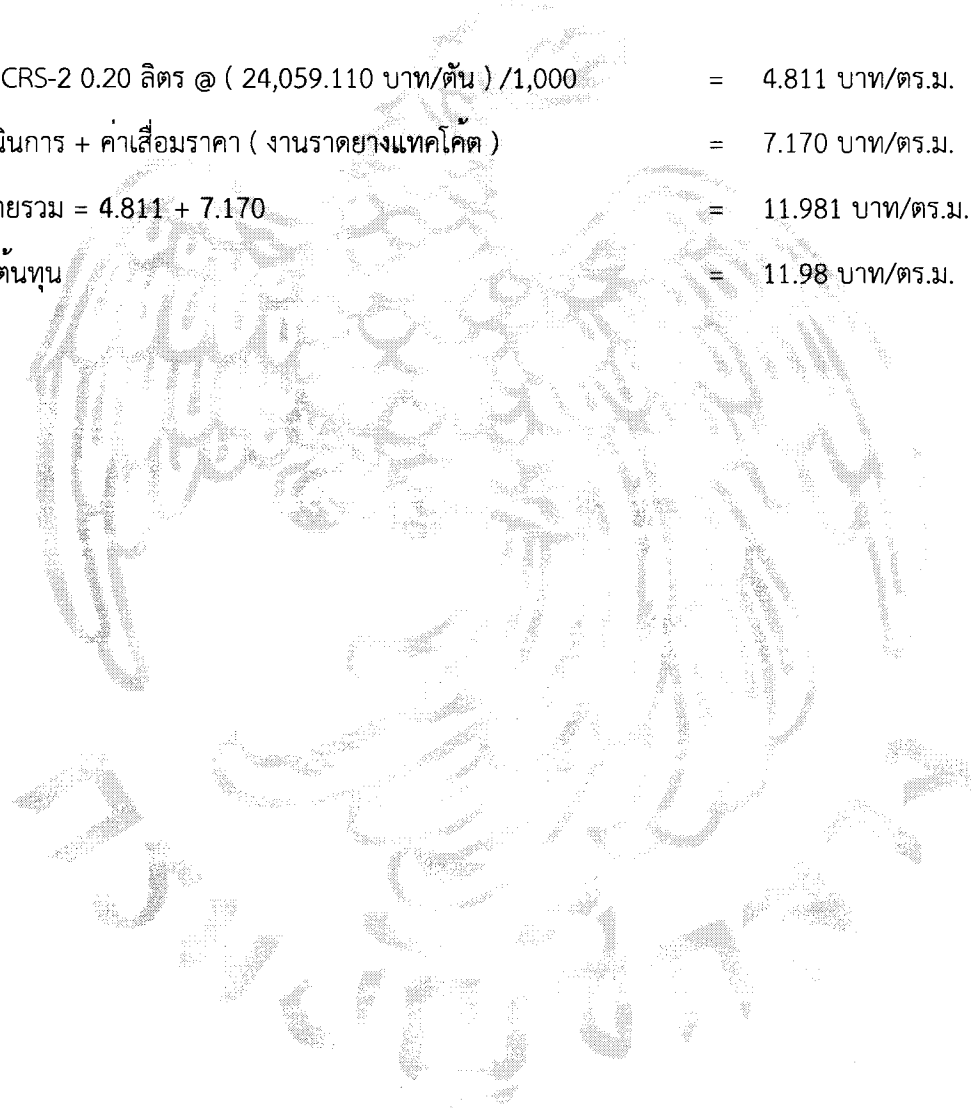 CRS-2 0.20 ลิตร @ ( 24,059.110 บาท/ตัน ) /1,000 = 4.811 บาท/ตร.ม.
นินการ + ค่าเสื่อมราคา ( งานราดยางแทคโค้ต ) = 7.170 บาท/ตร.ม.
ายรวม = 4.811 + 7.170 = 11.981 บาท/ตร.ม.
ต้นทุน = 11.98 บาท/ตร.ม.